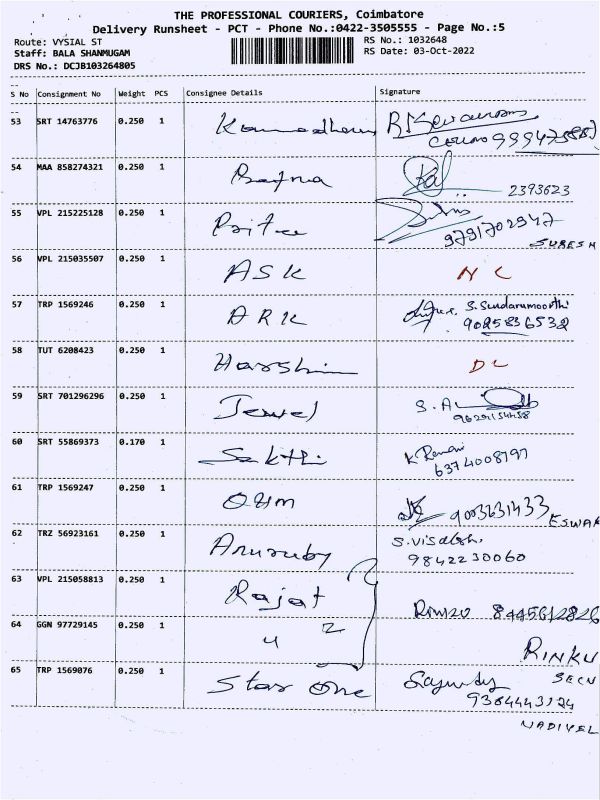 THE PROFESSIONAL COURIERS, Coimbatore
Delivery Runsheet - PCT - Phone No.:0422-3505555 - Page No.:5
Route: VYSIAL ST
RS No.: 1032648
Staff: BALA SHANMUGAM
RS Date: 03-Oct-2022
DRS No.: DCJB103264805
S No Consignment No Weight PCS Consignee Details Signature
53 SRT 14763776 0.250 1
54 MAA 858274321 0.250 1 2393623
55 VPL 215225128 0.250 1 9791702947
SURESH
56 VPL 215035507 0.250 1 ASK NC
57 TRP 1569246 0.250 1 ARK S. Sundaramoorthi
9025836532
58 TUT 6208423 0.250 1 Harshin DL
59 SRT 701296296 0.250 1 Jewel S.A
9629154458
60 SRT 55869373 0.170 1 Sakthi K Ramani
6374008797
61 TRP 1569247 0.250 1 OHM 9003631433
ESWAR
62 TRZ 56923161 0.250 1 Anuruby S. Visalakshi
9842230060
63 VPL 215058813 0.250 1 Rajat 8445612826
64 GGN 97729145 0.250 1 4 2 RINKU
65 TRP 1569076 0.250 1 Star One SECU
9384443124
VADIVEL